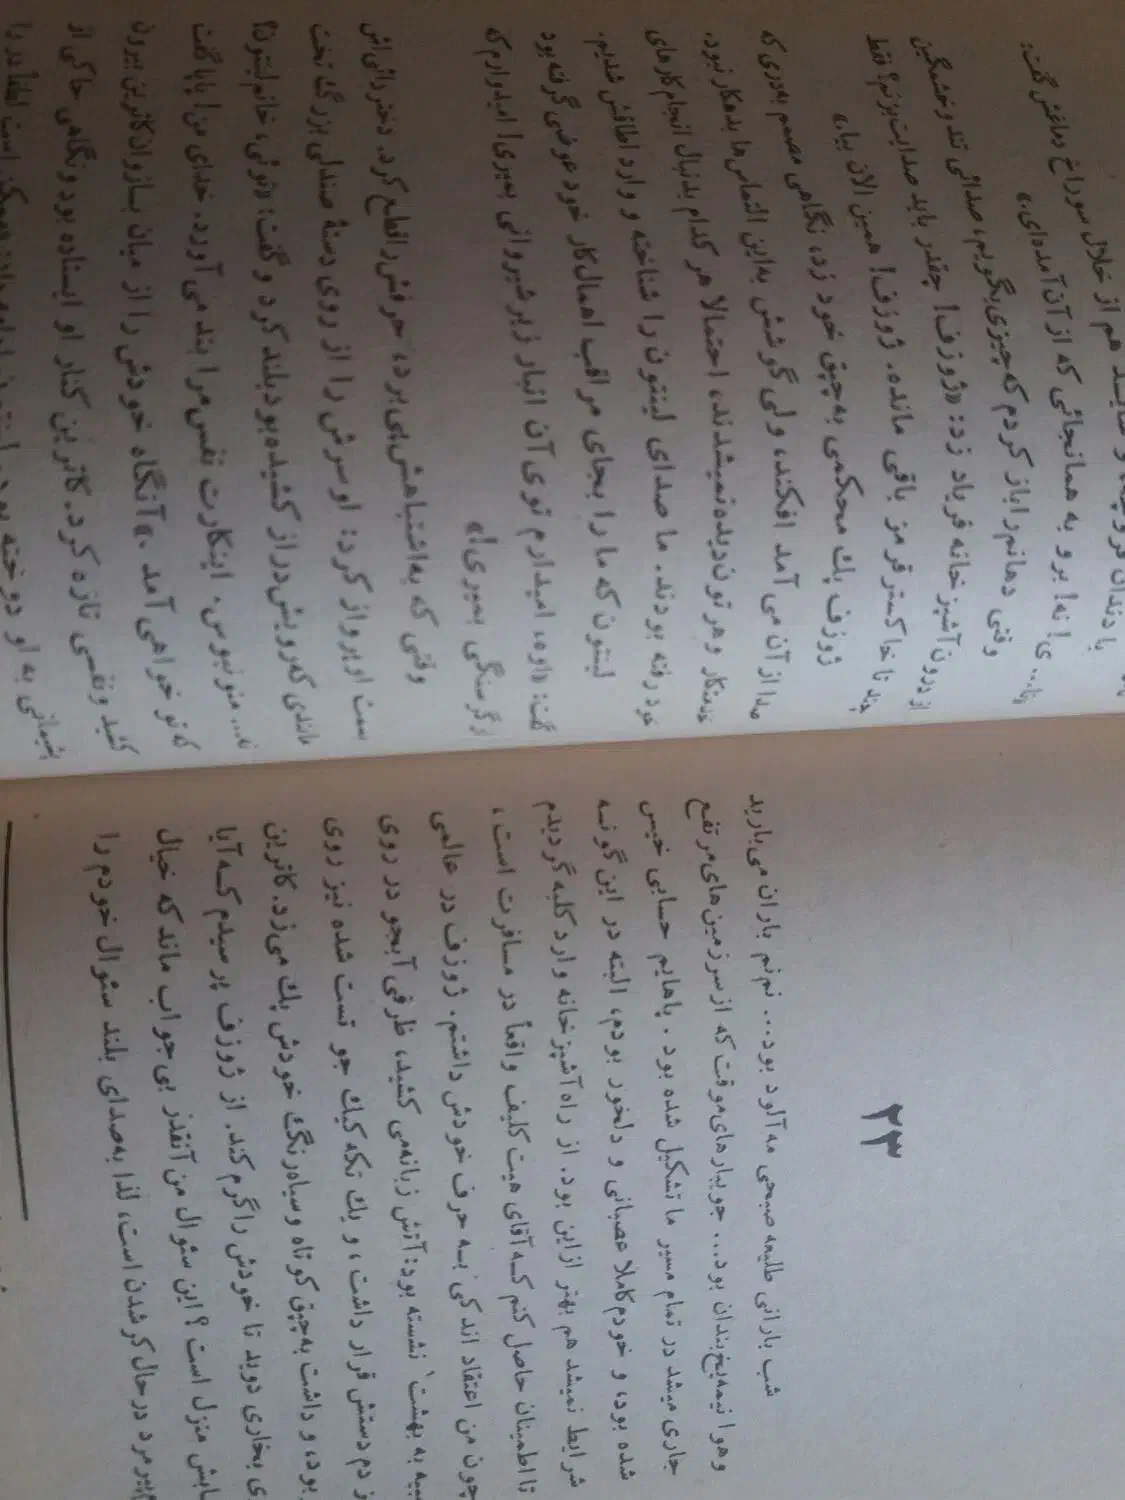 ۲۳
شب بارانی طلیعه صبحی مه‌آلود بود... نم‌نم باران می‌بارید
وهوا نیمه‌یخ‌بندان بود... جویبارهای‌موقت که از سرزمین‌های‌مرتفع
جاری میشد در تمام مسیر ما تشکیل شده بود. پاهایم حسابی خیس
شده بود، و خودم کاملا عصبانی و دلخور بودم، البته در این گونه
شرایط نمیشد هم بهتر ازاین بود. از راه آشپزخانه وارد کلبه گردیدم
تا اطمینان حاصل کنم کـه آقای هیت کلیف واقعاً در مسافرت است،
چون من اعتقاد اندکی بـه حرف خودش داشتم. ژوزف در عالمی
بیه به بهشت نشسته بود: آتش زبانه‌می کشید، ظرفی آبجو در روی
ز دم دستش قرار داشت، و یك تکه کیك جو تست شده نیز روی
بود، و داشت به‌چپق کوتاه وسیاه‌رنگ خودش پك می‌زد. کاترین
ی بخاری دوید تا خودش را گرم کند. از ژوزف پرسیدم کـه آیا
بابش منزل است؟ این سئوال من آنقدر بی‌جواب ماند که خیال
پیرمرد درحال کر شدن است، لذا به‌صدای بلند سئوال خودم را
با دندان قروچه و شایـد هم از خلال سوراخ دماغش گفت:
«نا... ی! نه! برو به همانجائی که از آن آمده‌ای.»
وقتی دهانم‌را باز کردم که چیزی‌بگویم، صدائی تند و خشمگین
از درون آشپزخانه فریاد زد: «ژوزف! چقدر باید صدایت بزنم؟ فقط
چند تا خاکستر قرمز باقی مانده. ژوزف! همین الان بیا.»
ژوزف یك محکمی به‌چپق خود زد، نگاهی مصمم به‌دری که
صدا از آن می‌آمد افکند، ولی گوشش به‌این التماس‌ها بدهکار نبود.
خدمتکار وهرتون‌دیده‌نمیشدند، احتمالا هر کدام بدنبال انجام‌کارهای
خود رفته بودند. ما صدای لینتون را شناخته و وارد اطاقش شدیم.
لینتون که ما را بجای مراقب اهمال‌کار خود عوضی گرفته بود
گفت: «اوه، امیدارم توی آن انبار زیر شیروانی بمیری! امیدوارم که
از گرسنگی بمیری!»
وقتی که به‌اشتباهش‌پی‌برد، حرفش‌راقطع‌کرد. دختر دائی‌اش
بسمت اوپرواز کرد: او سرش را از روی دستهٔ صندلی بزرگ تخت
مانندی که‌رویش‌دراز کشیده‌بود بلند کرد و گفت: «توئی، خانم لینتون؟
نه... منو نبوس. اینکارت نفس‌مرا بند می‌آورد. خدای من! پاپا گفت
که تو خواهی آمد.» آنگاه خودش را از میان بـازوان‌کاترین بیرون
کشید ونفسی تازه کرد. کاترین کنار او ایستاده بود ونگاهی حاکی از
پشیمانی به او دوخته بود.